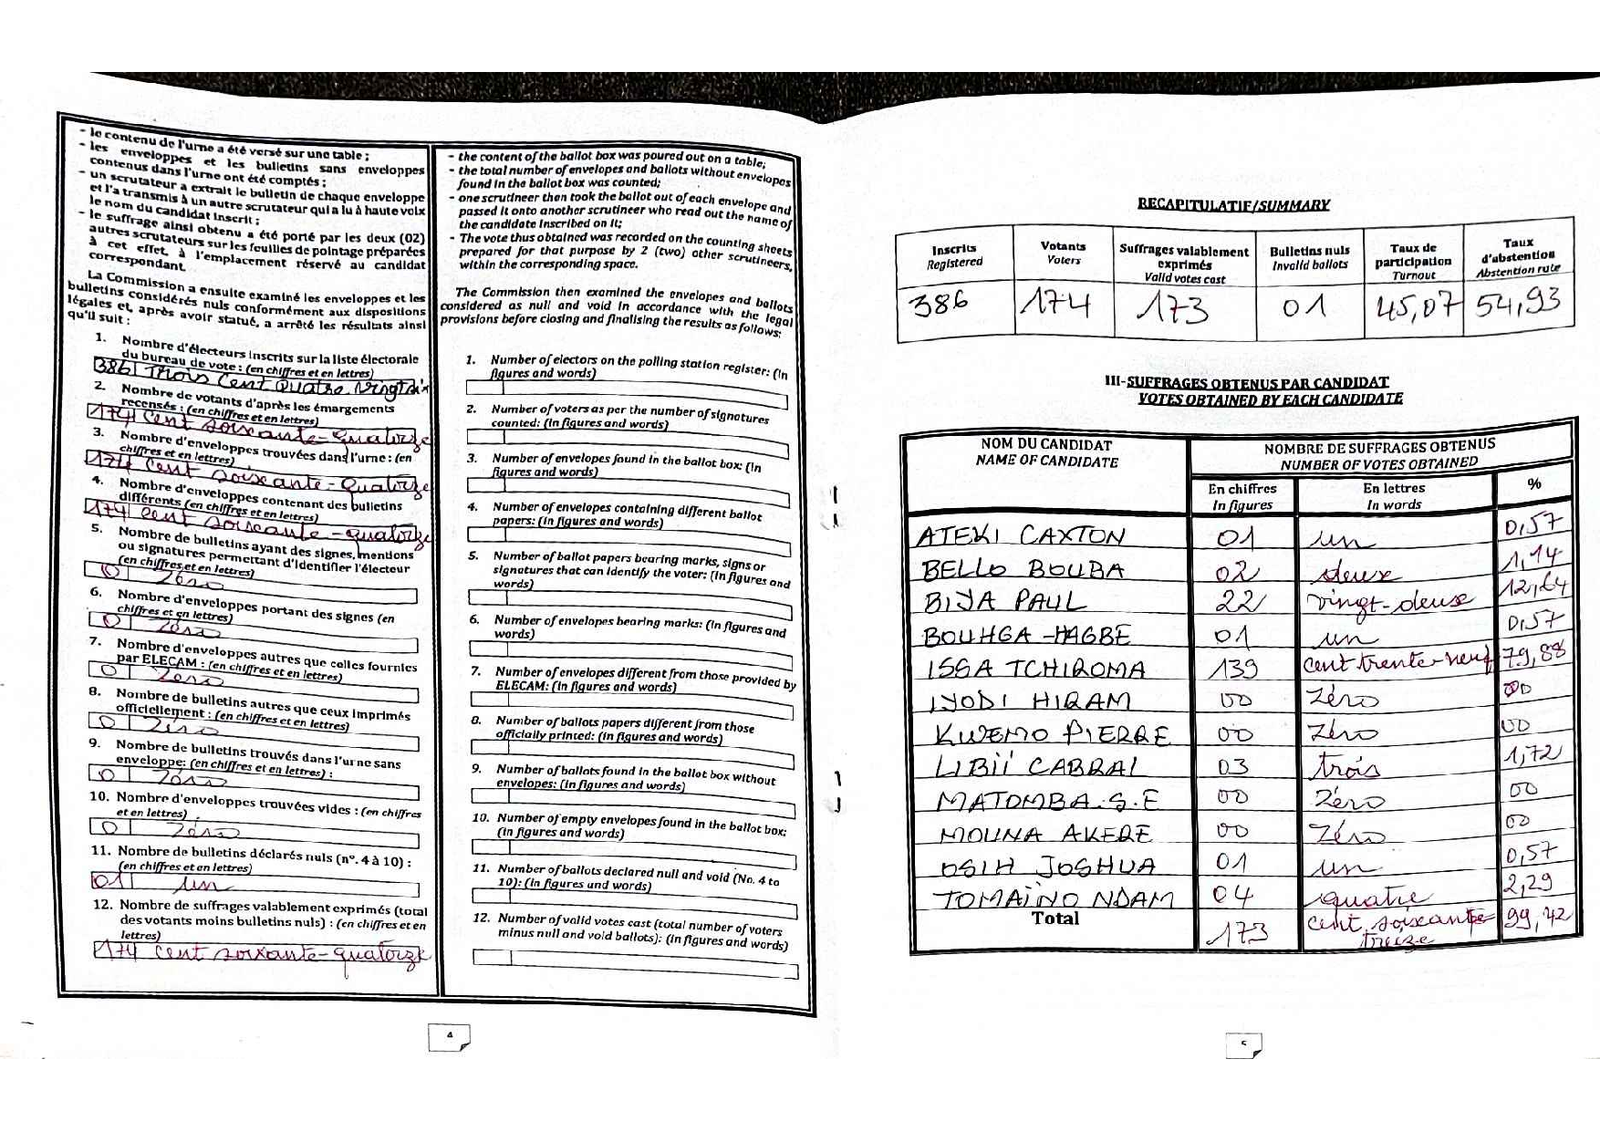 - le contenu de l'urne a été versé sur une table ;
- les enveloppes et les bulletins sans enveloppes
contenus dans l'urne ont été comptés ;
- un scrutateur a extrait le bulletin de chaque enveloppe
et l'a transmis à un autre scrutateur qui a lu à haute voix
le nom du candidat inscrit ;
- le suffrage ainsi obtenu a été porté par les deux (02)
autres scrutateurs sur les feuilles de pointage préparées
à cet effet, à l'emplacement réservé au candidat
correspondant.
La Commission a ensuite examiné les enveloppes et les
bulletins considérés nuls conformément aux dispositions
légales et, après avoir statué, a arrêté les résultats ainsi
qu'il suit :
1. Nombre d'électeurs inscrits sur la liste électorale
du bureau de vote : (en chiffres et en lettres)
386 Trois Cent Quatre Vingt Six
2. Nombre de votants d'après les émargements
recensés : (en chiffres et en lettres)
174 Cent soixante-quatorze
3. Nombre d'enveloppes trouvées dans l'urne : (en
chiffres et en lettres)
174 Cent soixante-Quatorze
4. Nombre d'enveloppes contenant des bulletins
différents (en chiffres et en lettres)
174 cent soixante-quatorze
5. Nombre de bulletins ayant des signes, mentions
ou signatures permettant d'identifier l'électeur
(en chiffres et en lettres)
0 Zéro
6. Nombre d'enveloppes portant des signes (en
chiffres et en lettres)
0 Zéro
7. Nombre d'enveloppes autres que celles fournies
par ELECAM : (en chiffres et en lettres)
0 Zéro
8. Nombre de bulletins autres que ceux imprimés
officiellement : (en chiffres et en lettres)
0 Zéro
9. Nombre de bulletins trouvés dans l'urne sans
enveloppe: (en chiffres et en lettres) :
0 Zéro
10. Nombre d'enveloppes trouvées vides : (en chiffres
et en lettres)
0 Zéro
11. Nombre de bulletins déclarés nuls (n°. 4 à 10) :
(en chiffres et en lettres)
01 un
12. Nombre de suffrages valablement exprimés (total
des votants moins bulletins nuls) : (en chiffres et en
lettres)
174 cent soixante-quatorze
- the content of the ballot box was poured out on a table;
- the total number of envelopes and ballots without envelopes
found in the ballot box was counted;
- one scrutineer then took the ballot out of each envelope and
passed it onto another scrutineer who read out the name of
the candidate inscribed on it;
- The vote thus obtained was recorded on the counting sheets
prepared for that purpose by 2 (two) other scrutineers,
within the corresponding space.
The Commission then examined the envelopes and ballots
considered as null and void in accordance with the legal
provisions before closing and finalising the results as follows:
1. Number of electors on the polling station register: (in
figures and words)
2. Number of voters as per the number of signatures
counted: (In figures and words)
3. Number of envelopes found in the ballot box: (In
figures and words)
4. Number of envelopes containing different ballot
papers: (In figures and words)
5. Number of ballot papers bearing marks, signs or
signatures that can identify the voter: (in figures and
words)
6. Number of envelopes bearing marks: (In figures and
words)
7. Number of envelopes different from those provided by
ELECAM: (In figures and words)
8. Number of ballots papers different from those
officially printed: (in figures and words)
9. Number of ballots found in the ballot box without
envelopes: (in figures and words)
10. Number of empty envelopes found in the ballot box:
(in figures and words)
11. Number of ballots declared null and void (No. 4 to
10): (in figures and words)
12. Number of valid votes cast (total number of voters
minus null and void ballots): (in figures and words)
4
RECAPITULATIF/SUMMARY
Inscrits Votants Suffrages valablement exprimés Bulletins nuls Taux de participation Taux d'abstention
Registered Voters Valid votes cast Invalid ballots Turnout Abstention rate
386 174 173 01 45,07 54,93
III-SUFFRAGES OBTENUS PAR CANDIDAT
VOTES OBTAINED BY EACH CANDIDATE
NOM DU CANDIDAT NOMBRE DE SUFFRAGES OBTENUS
NAME OF CANDIDATE NUMBER OF VOTES OBTAINED
En chiffres En lettres %
In figures In words
ATEKI CAXTON 01 un 0,57
BELLO BOUBA 02 deux 1,14
BIYA PAUL 22 vingt-deux 12,64
BOUHGA-HAGBE 01 un 0,57
ISSA TCHIROMA 139 cent trente-neuf 79,88
IYODI HIRAM 00 Zéro 00
KWEMO PIERRE 00 Zéro 00
LIBII CABRAL 03 trois 1,72
MATOMBA.S.E 00 Zéro 00
MOUNA AKERE 00 Zéro 00
OSIH JOSHUA 01 un 0,57
TOMAÏNO NDAM 04 quatre 2,29
Total 173 cent soixante treize 99,42
5